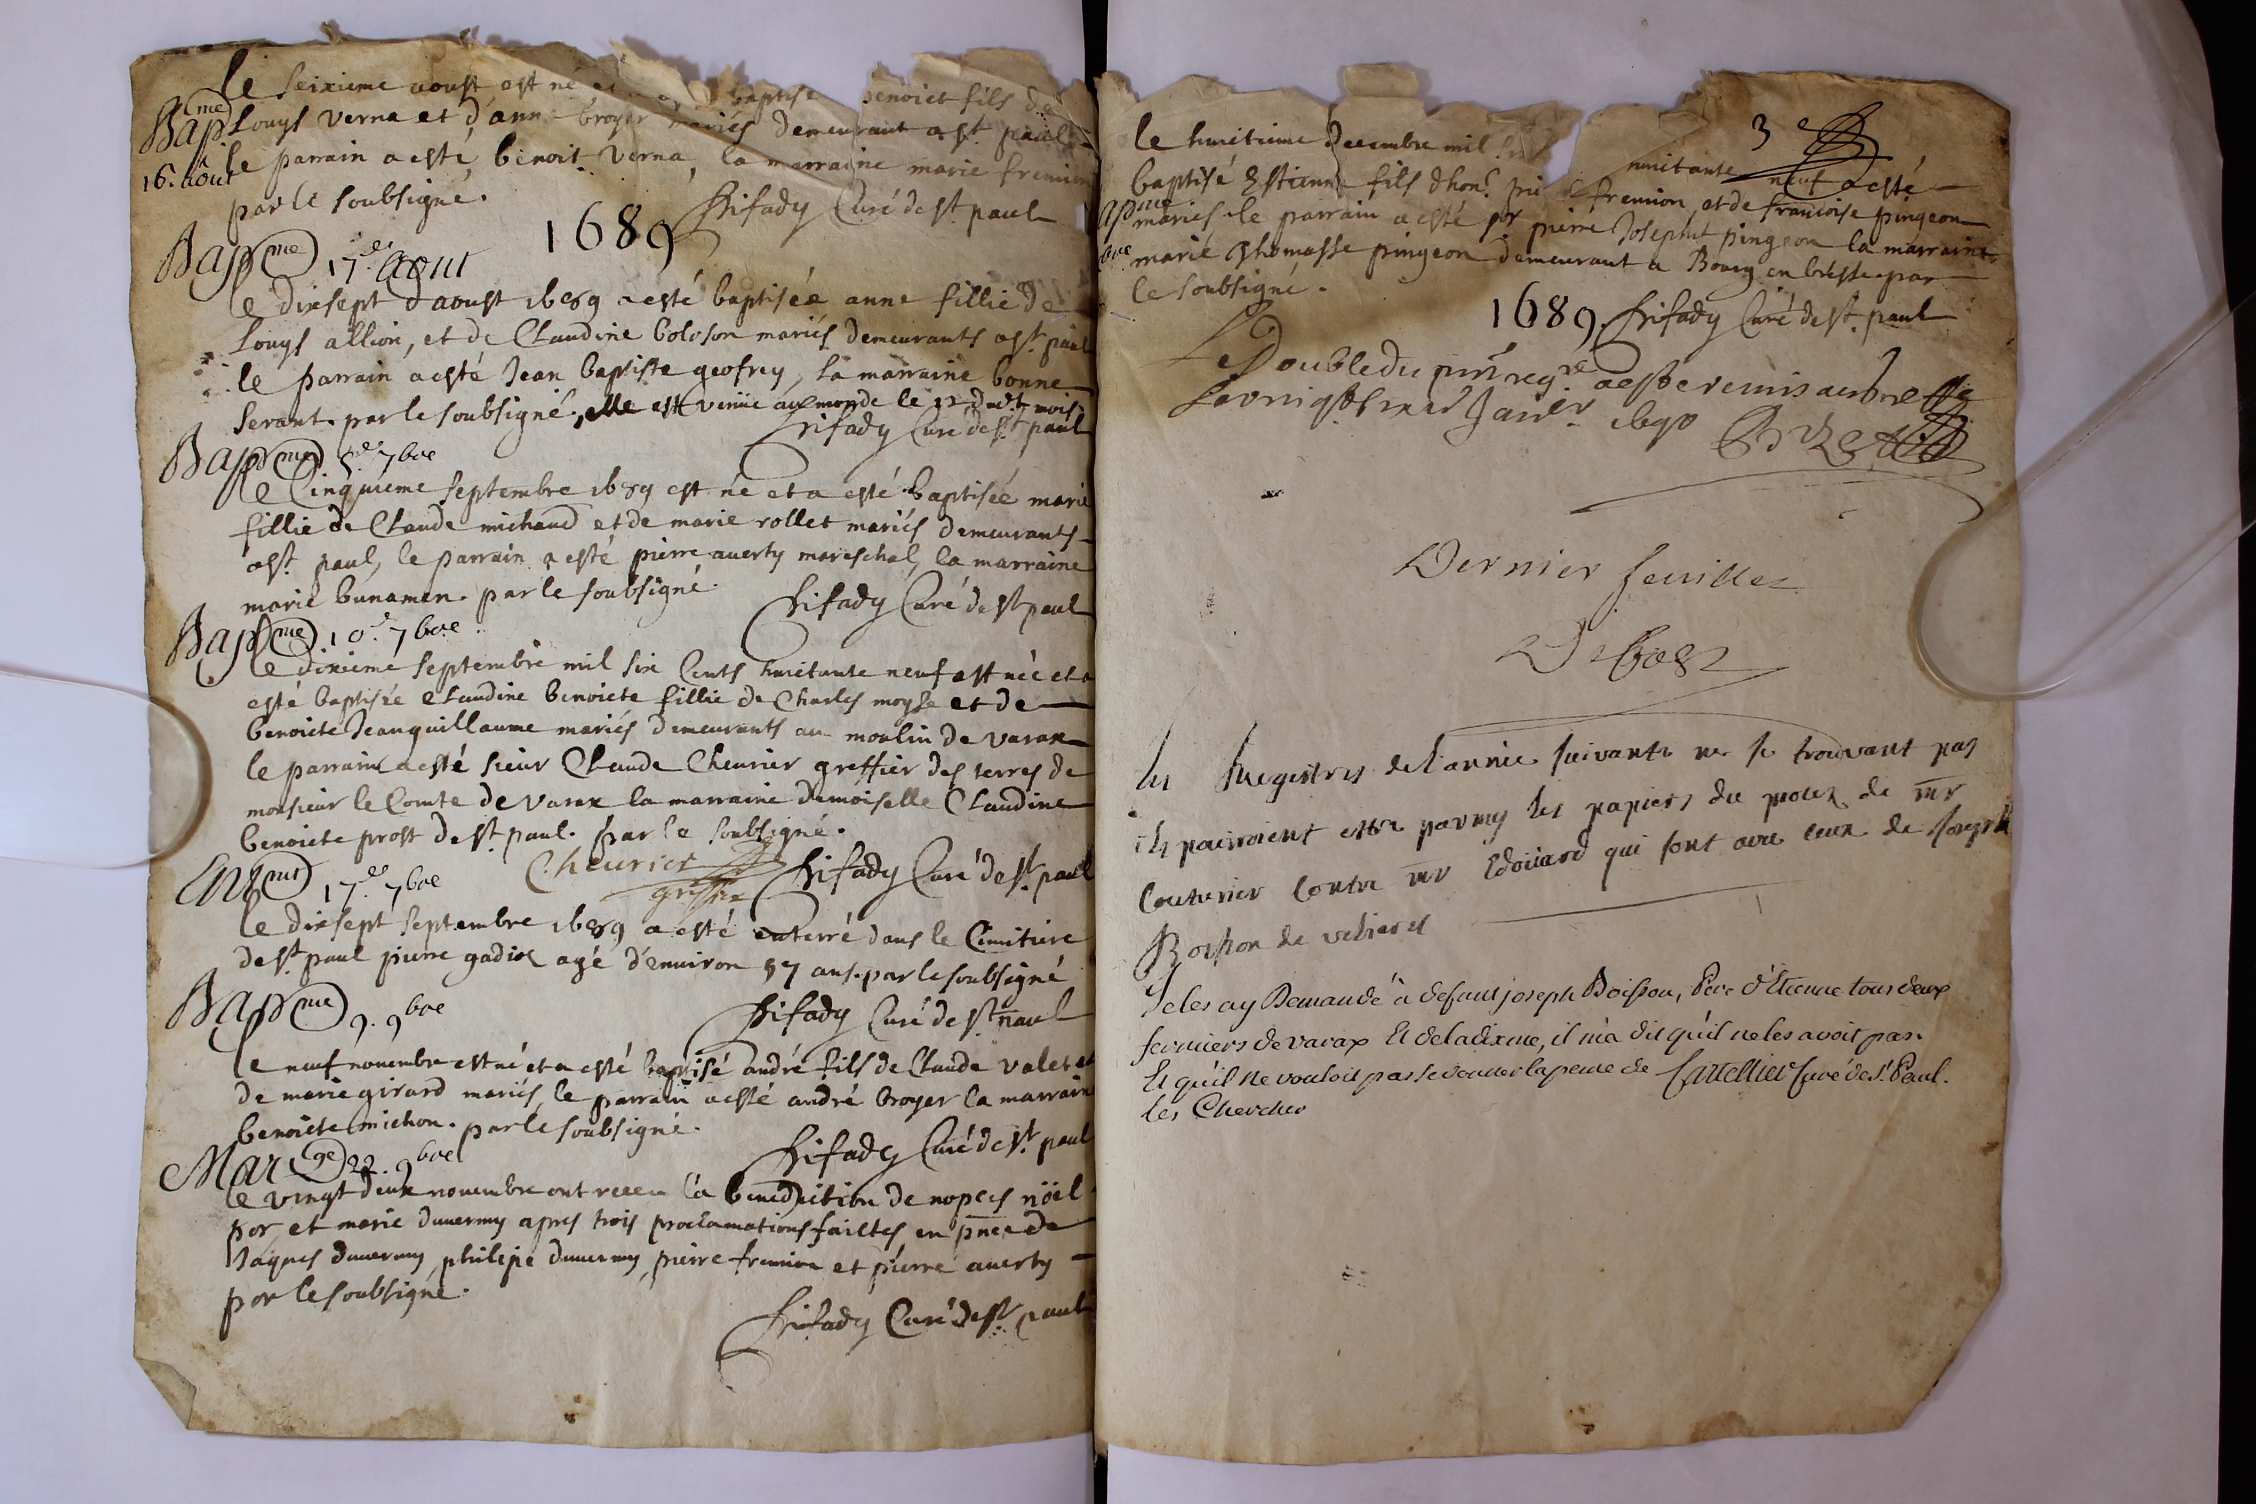 Le seixieme aoust est né et a baptise benoict fils de
Bap.me Louys verna et d'anne broyer mariés demeurant a st. paul
16. aout le parrain a esté, benoit verna, la marraine marie fremion
par le soubsigné.
Curé de st. paul
1689
Bapt.me 17.e Aout
le dixsept d'aoust 1689 a esté baptisée anne fillie de
Louys allion, et de Claudine boloson mariés demeurants a st. paul
le parrain a esté Jean baptiste geofrey, la marraine bonne
serant. par le soubsigné, elle est venüe au monde le 12 dudt. mois.
Curé de st. paul
Bapt.me 5.e 7bre
Le Cinquieme septembre 1689 est né et a esté baptisée marie
fillie de Claude michaud et de marie rollet mariés demeurants
a st. paul, le parrain a esté pierre auerty mareschal, la marraine
marie bunaman. par le soubsigné
Curé de st paul
Bapt.me 10.e 7bre
le dixieme septembre mil six Cents huictante neuf est née et a
esté baptisée Claudine benoicte fillie de Charles moyse et de
benoicte Jeanguillaume mariés demeurants au moulin de varax
le parrain a esté sieur Claude Cheurier greffier des terres de
monsieur le Comte de varax la marraine damoiselle Claudine
benoicte prost de st. paul. par le soubsigné.
Cheurier
Curé de st. paul
Ent.mt 17.e 7bre
le dixsept septembre 1689 a esté enterré dans le Cimitiere
de st. paul pierre gadiol agé d'enuiron 57 ans. par le soubsigné
Curé de st. paul
Bapt.me 9. 9bre
le neuf nouembre est né et a esté baptisé andré fils de Claude valet et
de marie girard mariés, le parrain a esté andré broyer la marraine
benoicte michon. par le soubsigné.
Curé de st. paul
Mariage 22. 9bre
le vingt deux nouembre ont receu la benediction de nopces nöel
por, et marie duuerny apres trois proclamations faictes, en pnce de
Jaques duuerny, philipe duuerny, pierre fremion et pierre auerty
par le soubsigné.
Curé de st. paul
3e
le huictieme decembre mil huictante neuf a esté
baptisé Estienne fils d'hon. fremion, et de francoise pingeon
mariés, le parrain a esté pierre Josepht pingeon la marraine
marie thomasse pingeon demeurant a Bourg en bresse par
le soubsigné.
1689. Curé de st. paul
Le Double du a este remis au greffe
Janer. 1690
Dernier feuillet
Les Registres de l'année suivante ne se trouvant pas
ils pouroient estre parmy les papiers du procez de mr
Couturier contre mr Edoüard qui sont avec ceux de Joseph
Boisson de
Je les ay Demandé à defunt joseph Boisson, Pere d'Etienne tous deux
fermiers de varax Et de la dixme, il m'a dit qu'il ne les avoit pas.
Et qu'il Ne vouloit pas se donner la peine de Cartellier Curé de st. Paul.
les Chercher